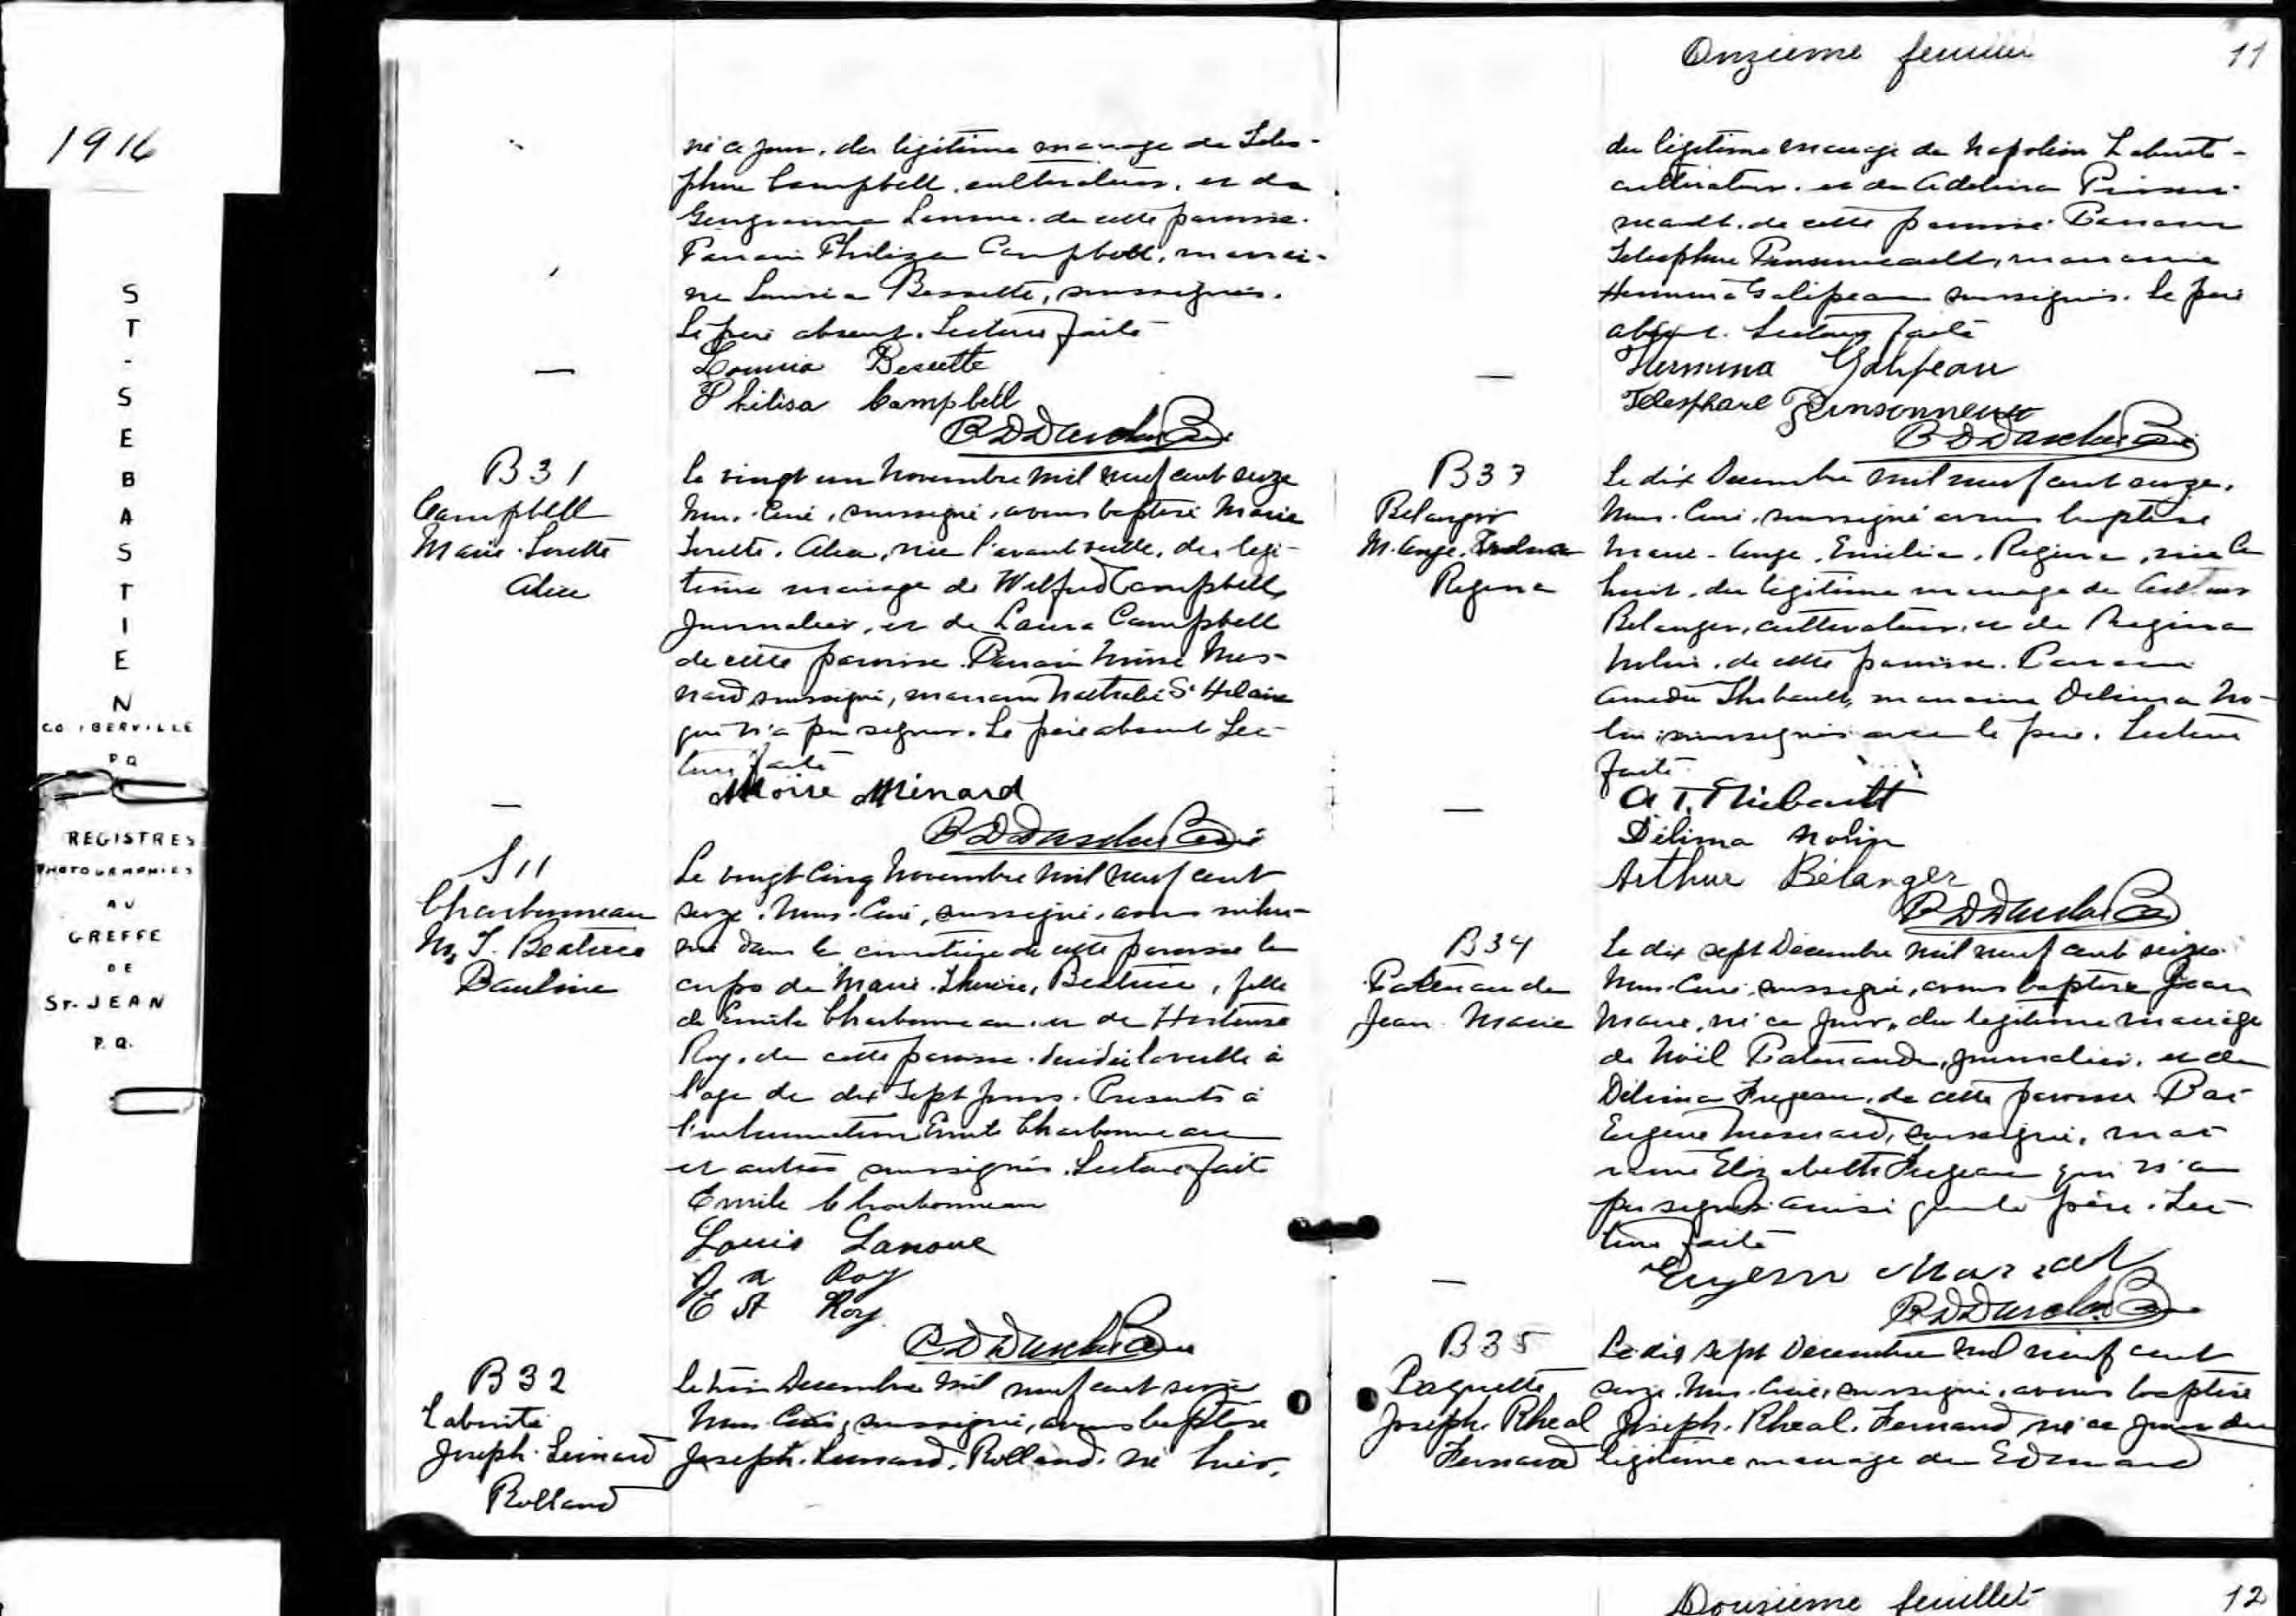 1916
ST-SEBASTIEN
CO IBERVILLE
PQ
REGISTRES
PHOTOGRAPHIES
AU
GREFFE
DE
ST. JEAN
P.Q.
né ce jour, du légitime mariage de Téles-
phore Campbell, cultivateur, et de
Lanoue, de cette paroisse.
Parrain Philiza Campbell, marrai-
ne Bessette, soussignés.
Le père absent. Lecture faite
Bessette
Philisa Campbell
B31
Campbell
Marie Lorette
Alice
Le vingt un Novembre mil neuf cent seize
Nous, Curé, soussigné, avons baptisé Marie
Lorette, Alice, née l'avant veille, du légi-
time mariage de Wilfred Campbell
journalier, et de Laura Campbell
de cette paroisse. Parrain Moïse Mes-
nard soussigné, marraine Nathalie St Hilaire
qui n'a pu signer. Le père absent Lec-
ture faite
Moïse Ménard
S11
Charbonneau
M. T. Béatrice
Pauline
Le vingt cinq Novembre mil neuf cent
seize, Nous, Curé, soussigné, avons inhu-
mé dans le cimetière de cette paroisse le
corps de Marie, Thérèse, Béatrice, fille
de Emile Charbonneau et de Hortense
Roy, de cette paroisse, décédée la veille à
l'age de dix sept jours. Présents à
l'inhumation Emile Charbonneau
et autres soussignés. Lecture faite
Emile Charbonneau
Louis Lanoue
Roy
E A Roy
B32
Joseph Léonard
Rolland
Le trois Decembre mil neuf cent seize
Nous Curé, soussigné, avons baptisé
Joseph, Léonard, Rolland, né hier,
Onzième feuillet 11
du légitime mariage de Napoléon
cultivateur, et de Adelina Pinson-
neault, de cette paroisse. Parrain
Telesphore Pinsonneault, marraine
Hermina Galipeau soussignés. Le père
absent. Lecture faite
Hermina Galipeau
Telesphore Pinsonneau
B33
Belanger
M. Ange
Regina
Le dix Decembre mil neuf cent seize,
Nous, Curé, soussigné avons baptisé
Marie-Ange, Emilia, Regina, née le
huit, du légitime mariage de
Belanger, cultivateur, et de Regina
Nolin, de cette paroisse. Parrain
Amédée Thibault, marraine Delima No-
lin, soussignés avec le père. Lecture
faite
A T. Thibault
Délima Nolin
Arthur Bélanger
B34
Patenaude
Jean Marie
Le dix sept Décembre mil neuf cent seize
Nous, Curé, soussigné, avons baptisé Jean
Marie, né ce jour, du légitime mariage
de Noël Patenaude, journalier, et de
Délima Fregeau, de cette paroisse. Par
Eugène Mesnard, soussigné, mar-
raine Elizabeth Fregeau qui n'a
pu signer ainsi que le père. Lec-
ture faite
B35
Paquette
Joseph Rheal
Fernand
Le dix sept Decembre mil neuf cent
seize, Nous, Curé, soussigné, avons baptisé
Joseph, Rheal, Fernand né ce jour du
légitime mariage de Edmond
Douzième feuillet 12